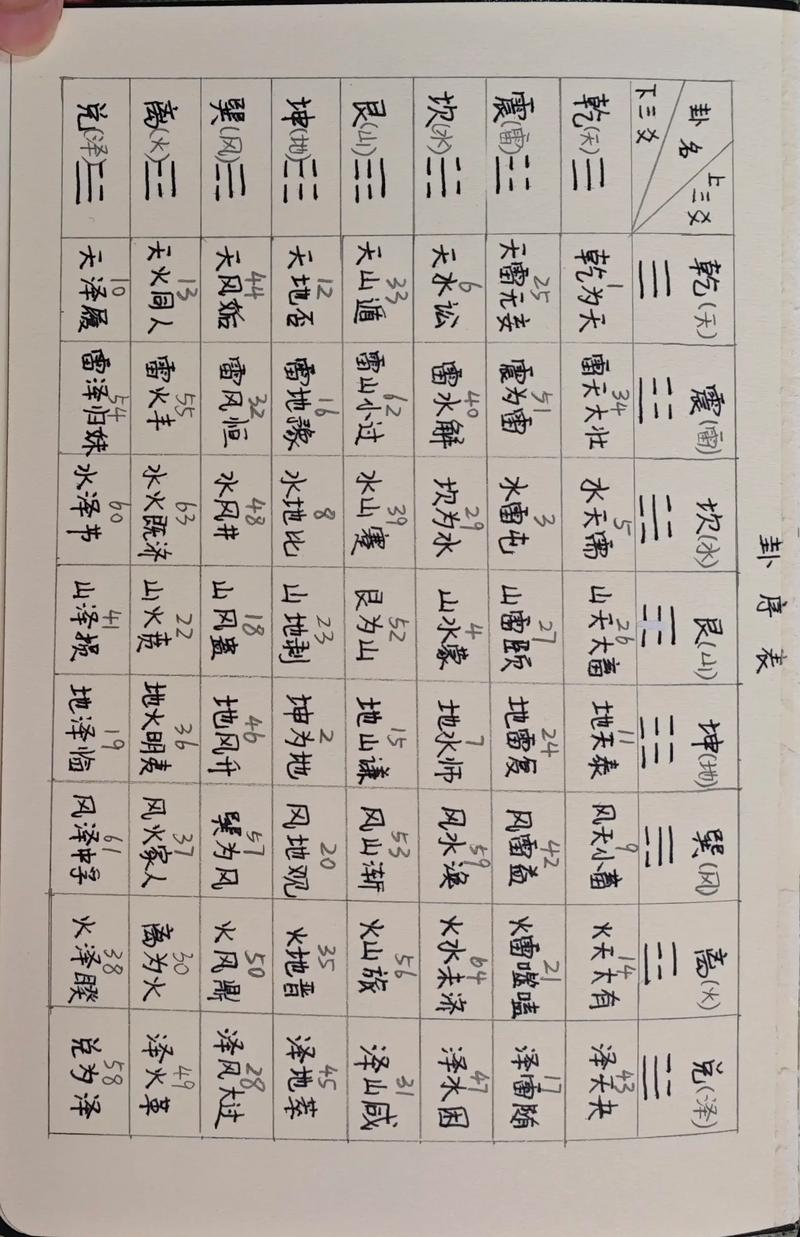 卦序表
卦名 上三爻 下三爻 乾(天) ☰ 震(雷) ☳ 坎(水) ☵ 艮(山) ☶ 坤(地) ☷ 巽(风) ☴ 离(火) ☲ 兑(泽) ☱
乾(天) ☰ 1 乾为天 34 雷天大壮 5 水天需 26 山天大畜 11 地天泰 9 风天小畜 14 火天大有 43 泽天夬
震(雷) ☳ 25 天雷无妄 51 震为雷 3 水雷屯 27 山雷颐 24 地雷复 42 风雷益 21 火雷噬嗑 17 泽雷随
坎(水) ☵ 6 天水讼 40 雷水解 29 坎为水 4 山水蒙 7 地水师 59 风水涣 64 火水未济 47 泽水困
艮(山) ☶ 33 天山遁 62 雷山小过 39 水山蹇 52 艮为山 15 地山谦 53 风山渐 56 火山旅 31 泽山咸
坤(地) ☷ 12 天地否 16 雷地豫 8 水地比 23 山地剥 2 坤为地 20 风地观 35 火地晋 45 泽地萃
巽(风) ☴ 44 天风姤 32 雷风恒 48 水风井 18 山风蛊 46 地风升 57 巽为风 50 火风鼎 28 泽风大过
离(火) ☲ 13 天火同人 55 雷火丰 63 水火既济 22 山火贲 36 地火明夷 37 风火家人 30 离为火 49 泽火革
兑(泽) ☱ 10 天泽履 54 雷泽归妹 60 水泽节 41 山泽损 19 地泽临 61 风泽中孚 38 火泽睽 58 兑为泽